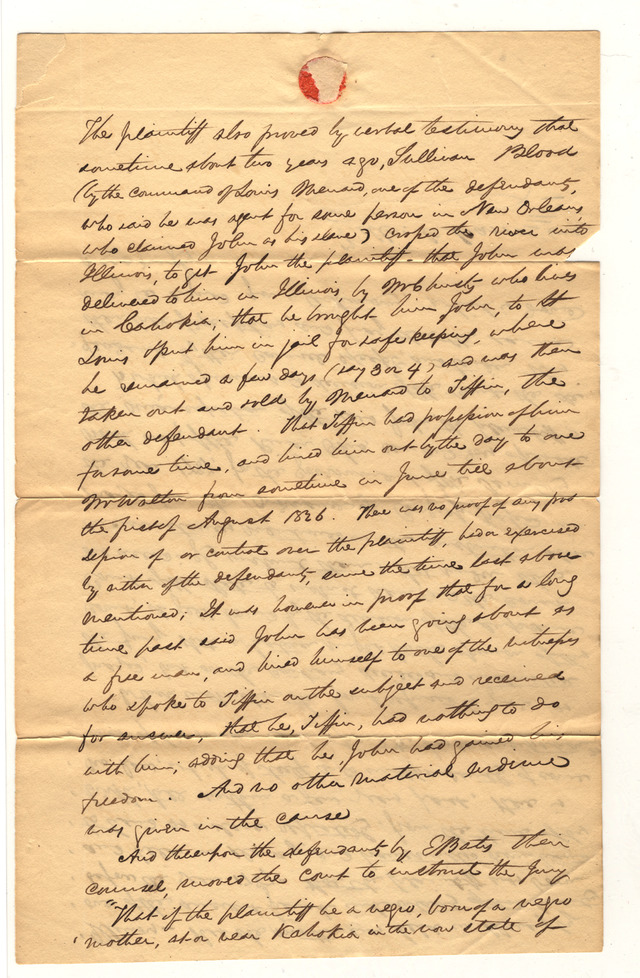 The plaintiff also proved by verbal testimony that
sometime about two years ago, Sullivan Blood
(by the command of Louis Menard, one of the defendants,
who said he was agent for some person in New Orleans,
who claimed John as his slave) crossed the river into
Illinois, to get John the plaintiff - that John was
delivered to him in Illinois, by Mr Christy who lives
in Cahokia; that he brought him John, to St
Louis & put him in jail for safe keeping, where
he remained a few days (say 3 or 4) and was then
taken out and sold by Menard to Tiffin, the
other defendant. That Tiffin had possession of him
for some time, and hired him out by the day to one
Mr Walton from sometime in June till about
the first of August 1826. There was no proof of any pos
session of or control over the plaintiff, had or exercised
by either of the defendants, since the time last above
mentioned; It was however in proof that for a long
time past said John has been going about as
a free man, and hired himself to one of the witnesses
who spoke to Tiffin on the subject and received
for answer, that he, Tiffin, had nothing to do
with him; adding that he, John had gained his
freedom. And no other material evidence
was given in the cause
And thereupon the defendants by E Bates their
counsel, moved the Court to instruct the Jury
"That if the plaintiff be a negro, born of a negro
mother, at or near Kahokia in the now state of